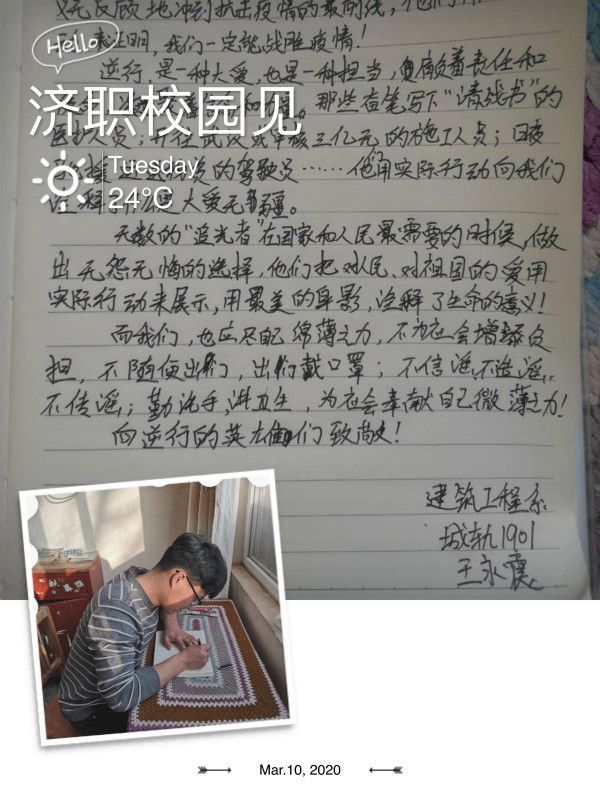 义无反顾地冲到抗击疫情的最前线,
Hello
来土明,我们一定能战胜疫情!
逆行,是一种大爱,也是一种担当,肩负着责任和
济职校园见
那些者笔写下“请战书”的
的施工人员;日夜
Tuesday
的驾驶员……他们用实际行动向我们
24°C
大爱无疆。
无数的“追光者”在国家和人民最需要的时候,做
出无怨无悔的选择,他们把对人民、对祖国的爱用
实际行动来展示,用最美的身影,诠释了生命的意义!
而我们,也应尽自己绵薄之力,不为社会增添负
担,不随便出门,出门戴口罩;不信谣,不造谣,
不传谣;勤洗手,讲卫生,为社会奉献自己微薄之力!
向逆行的英雄们致敬!
建筑工程系
城轨1901
王永震
Mar.10, 2020